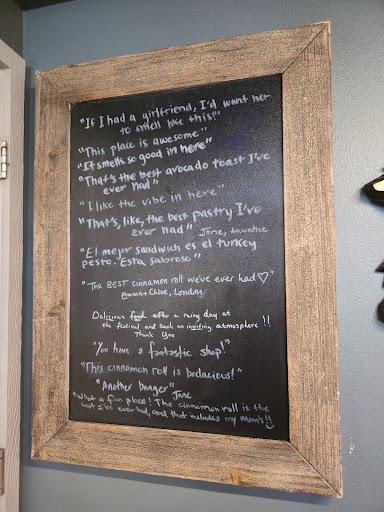 "If I had a girlfriend, I'd want her
to smell like this!"
"This place is awesome"
"It smells so good in here"
"That's the best avocado toast I've
ever had"
"I like the vibe in here"
"That's, like, the best pastry I've
ever had" Jane,
"El mejor sandwich es el turkey
pesto. Esta sabroso"
"The BEST cinnamon roll we've ever had♡"
Emma + Chloe, London
Delicious food after a rainy day at
the festival and such an inviting atmosphere!!
Thank You
"You have a fantastic shop!"
"This cinnamon roll is bodacious!"
"Another banger" Jane
"What a fun place! The cinnamon roll is the
best I've ever had, and that includes my Mum's!!